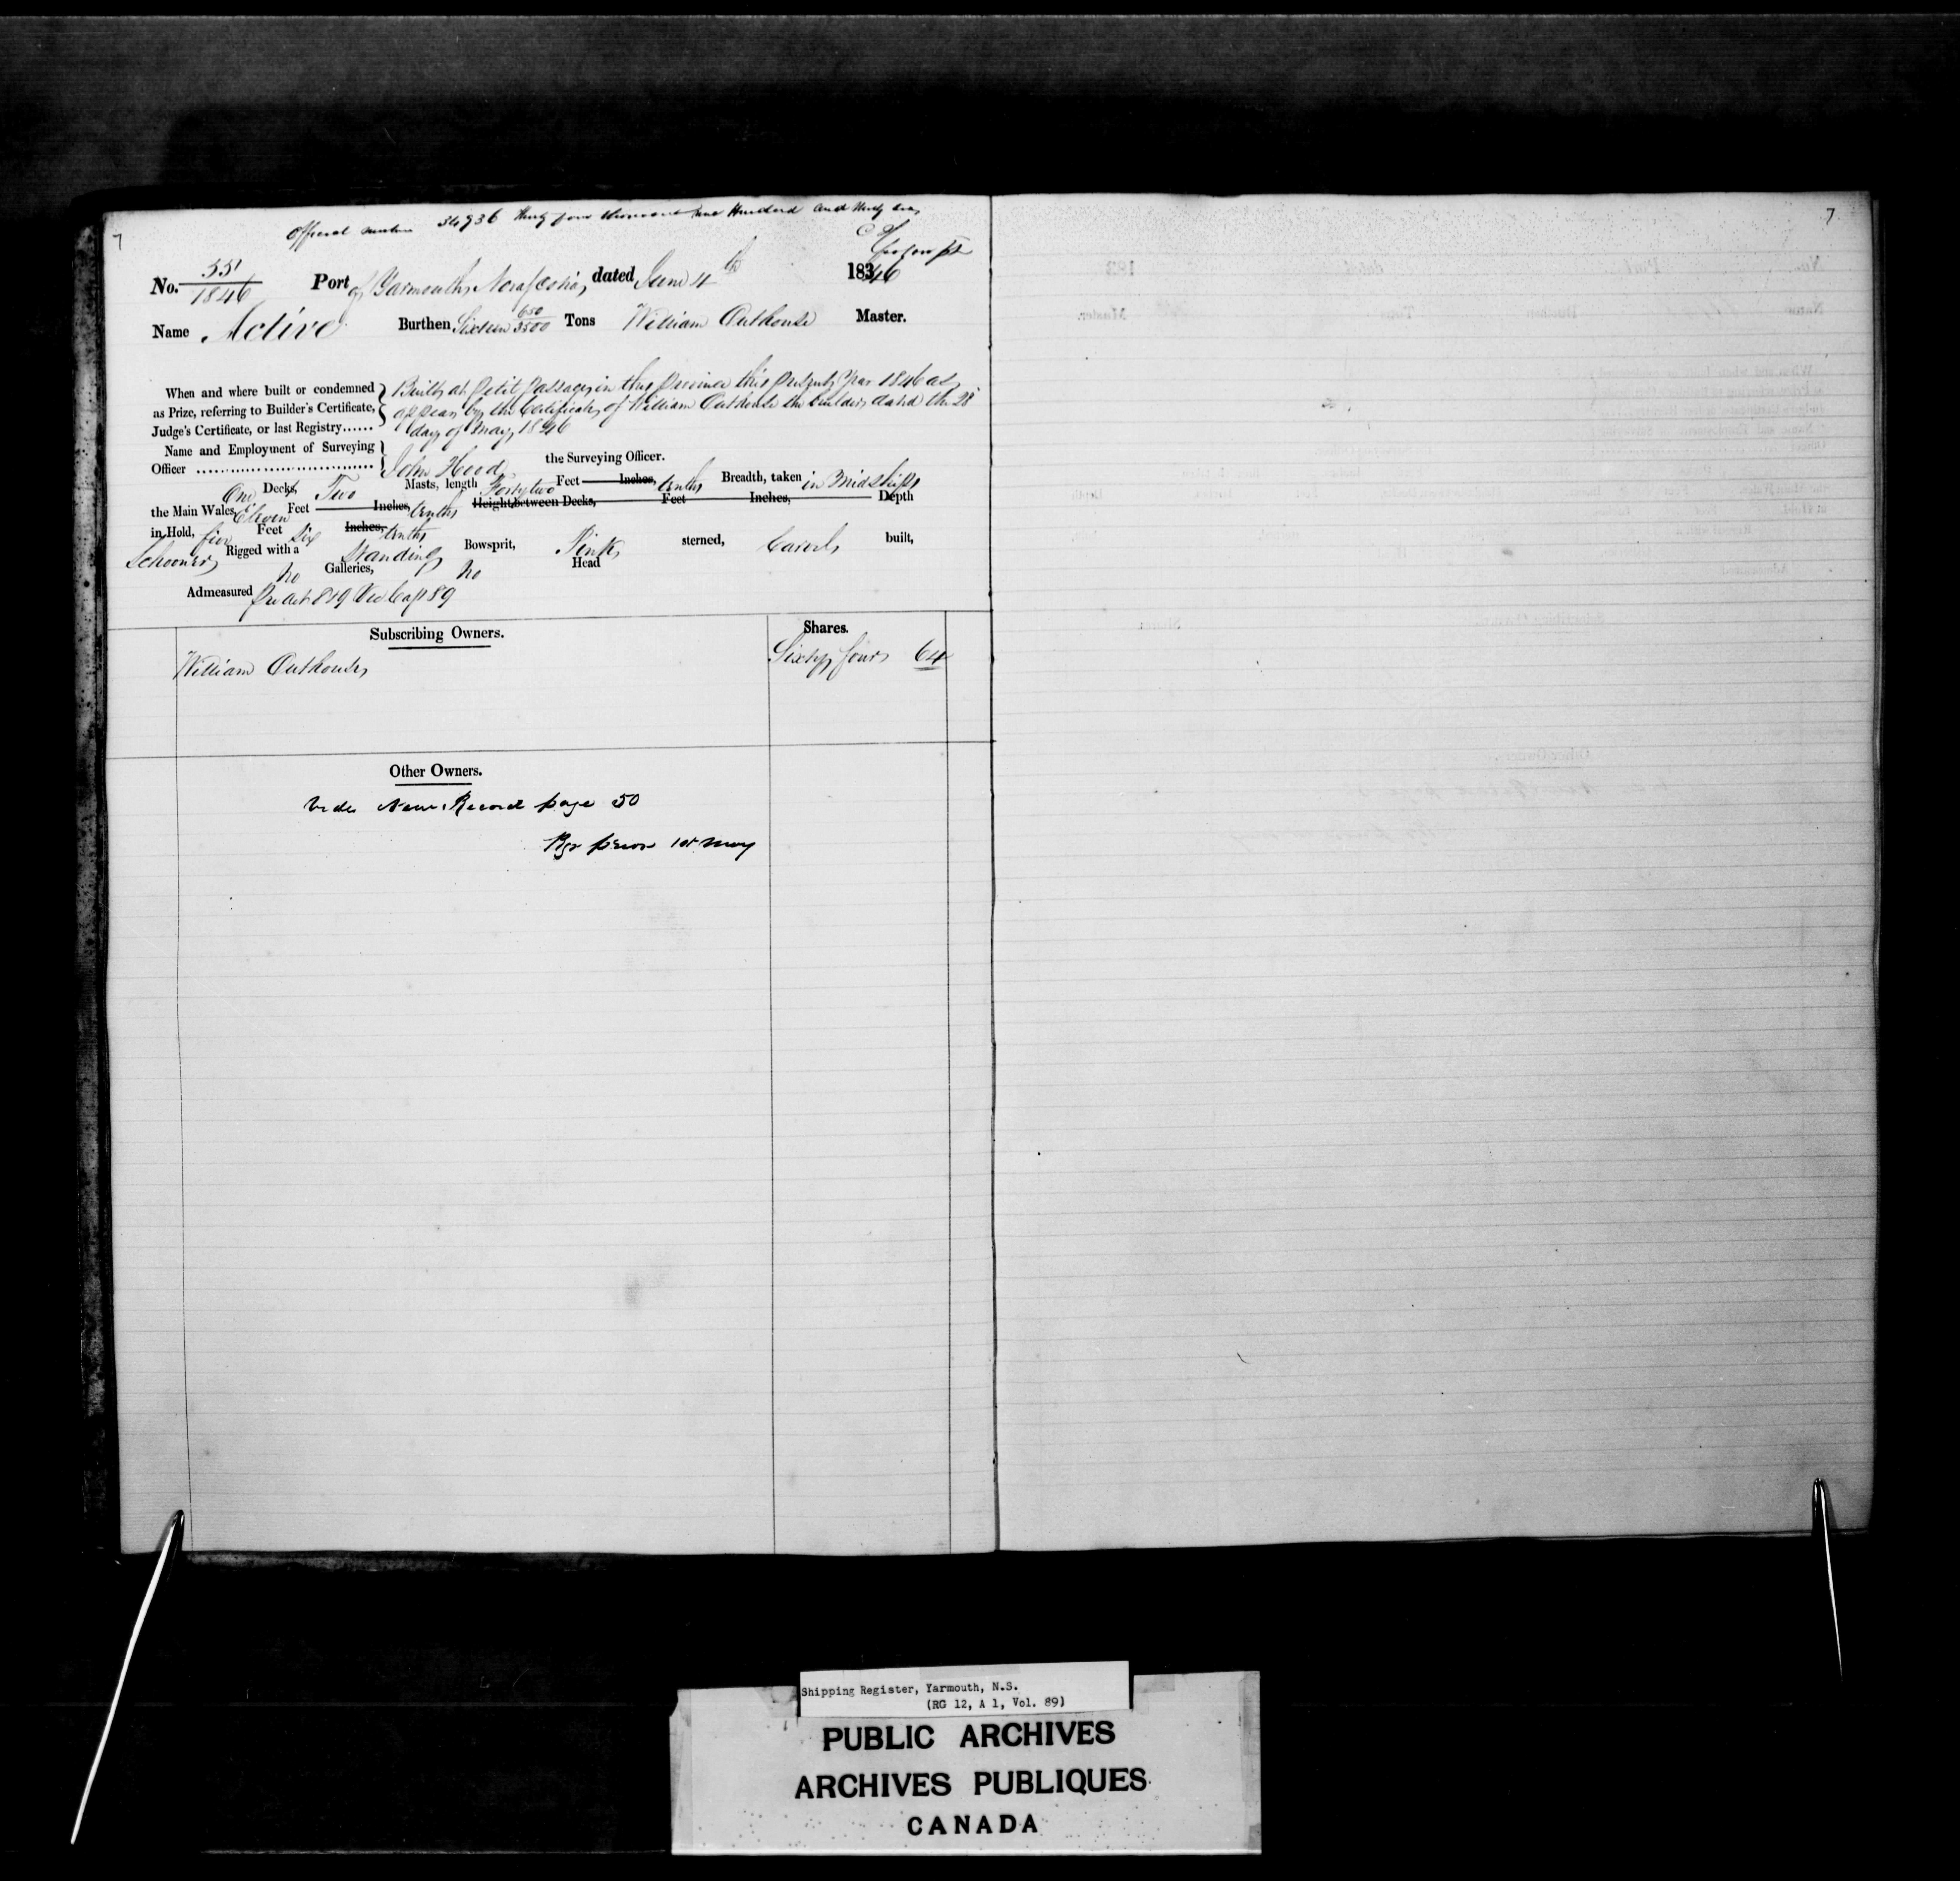 7
Official number 34936 Thirty four thousand nine Hundred and thirty six
No. 551/1846 Port of Yarmouth, Nova Scotia, dated June 4th 1846
Name Active Burthen Sixteen 650/3500 Tons William Outhouse Master.
When and where built or condemned as Prize, referring to Builder's Certificate, Judge's Certificate, or last Registry......
Built at Petit Passage, in this Province this present Year 1846 as
appears by the Certificate of William Outhouse the builder, dated the 28
day of May 1846
Name and Employment of Surveying
Officer .................................... John Hood the Surveying Officer.
One Decks, Two Masts, length Forty two Feet Inches, tenths Breadth, taken in Midships
the Main Wales, Eleven Feet Inches, tenths Height between Decks, Feet Inches, Depth
in Hold, five Feet Six Inches, tenths
Schooner Rigged with a Standing Bowsprit, Pink sterned, Carvel built,
no Galleries, no Head
Admeasured
Subscribing Owners. Shares.
William Outhouse Sixty four 64
Other Owners.
Vide New Record page 50
1st May
7
Shipping Register, Yarmouth, N.S.
(RG 12, A 1, Vol. 89)
PUBLIC ARCHIVES
ARCHIVES PUBLIQUES
CANADA